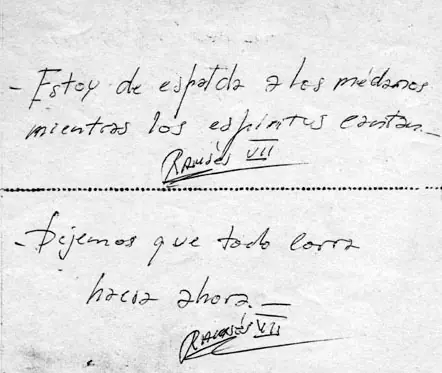 - Estoy de espalda a los médanos
mientras los espíritus cantan._
Ramsés VII
- Dejemos que todo corra
hacia ahora._
Ramsés VII